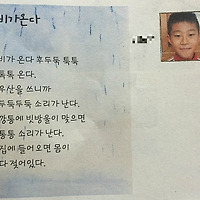 비가온다
비가 온다 후두둑 툭툭
툭툭 온다.
우산을 쓰니까
두둑두둑 소리가 난다.
깡통에 빗방울이 맞으면
통통 소리가 난다.
집에 들어오면 몸이
다 젖어있다.